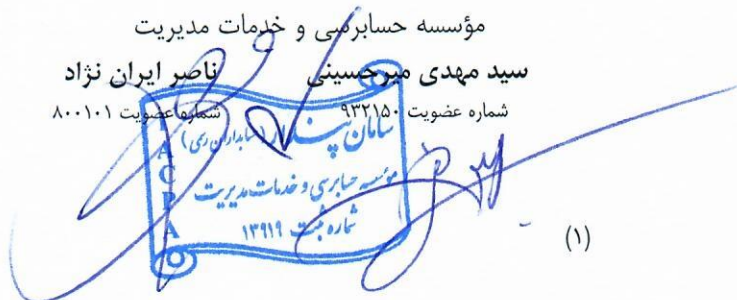 مؤسسه حسابرسی و خدمات مدیریت
سید مهدی میرحسینی ناصر ایران نژاد
شماره عضویت ۹۳۲۱۵۰ شماره عضویت ۸۰۰۱۰۱
سامان پندار (حسابداران رسمی)
مؤسسه حسابرسی و خدمات مدیریت
شماره ثبت ۱۳۹۱۹
I A C P A
(۱)